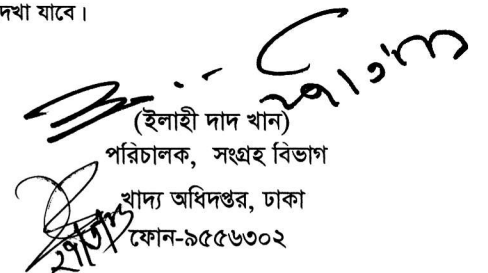 দেখা যাবে।
২৭/৩/১৮
(ইলাহী দাদ খান)
পরিচালক, সংগ্রহ বিভাগ
খাদ্য অধিদপ্তর, ঢাকা
ফোন-৯৫৫৬৩০২